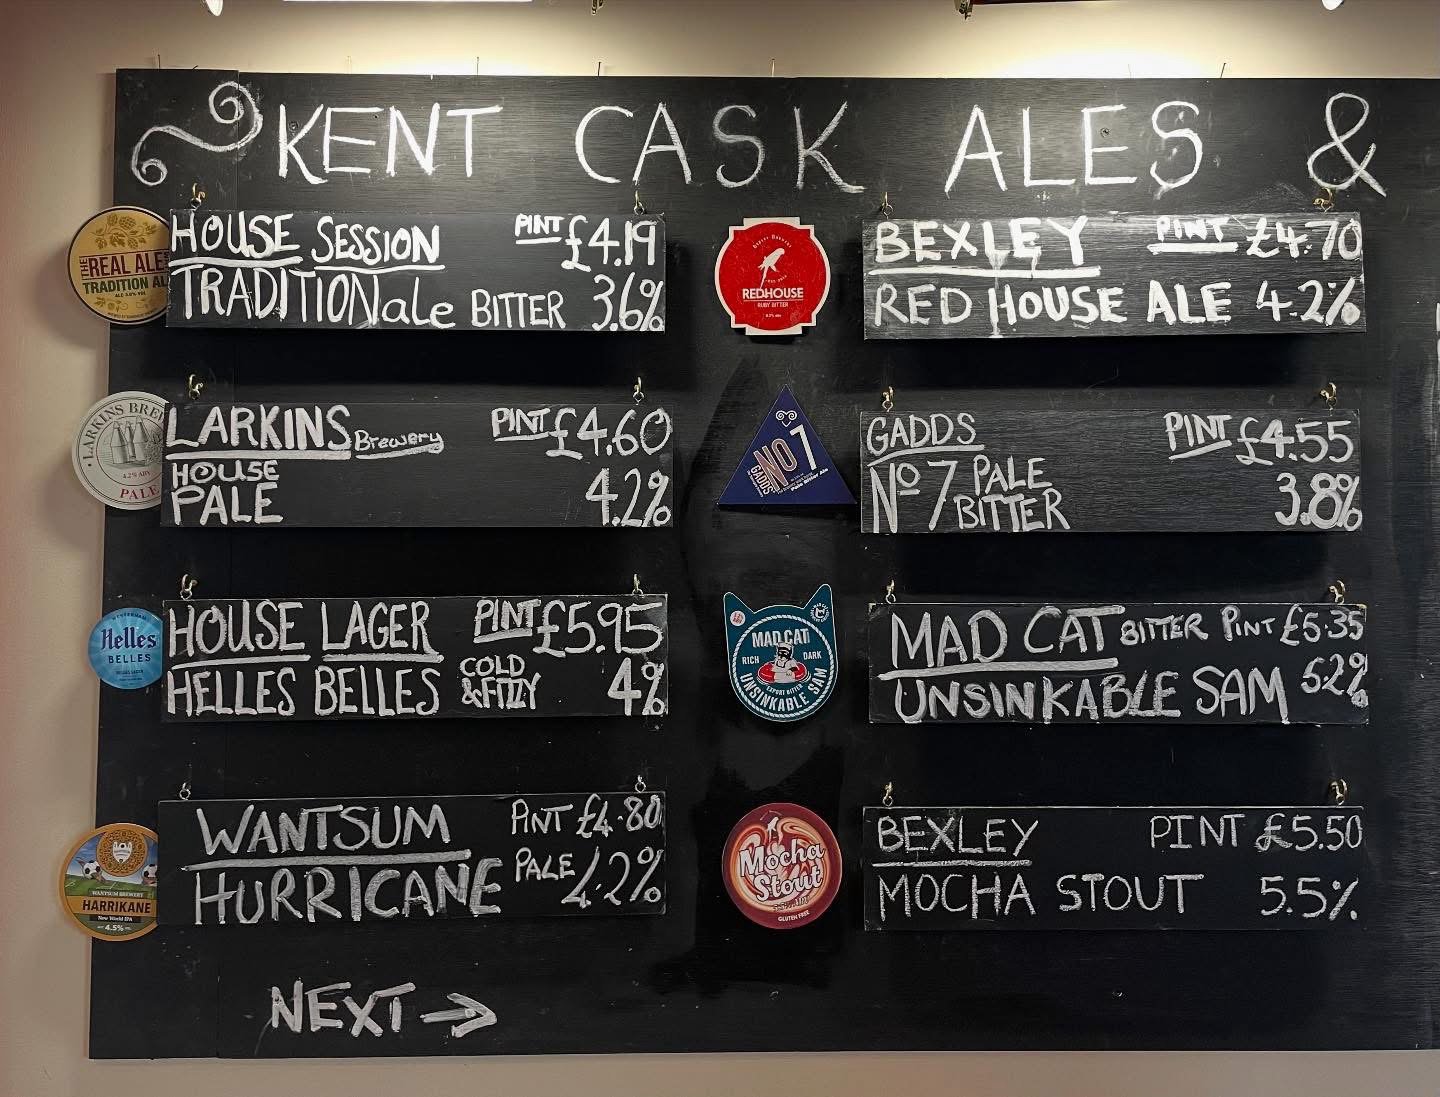 KENT CASK ALES &
THE
REAL ALE
TRADITION AL
HOUSE SESSION PINT £4.19
TRADITIONale BITTER 3.6%
REDHOUSE
RUBY BITTER
BEXLEY PINT £4.70
RED HOUSE ALE 4.2%
LARKINS BRE
4.2% ABV
PALE
LARKINS Brewery PINT £4.60
HOUSE
PALE 4.2%
GADDS'
No 7
Pale Bitter Ale
GADDS PINT £4.55
No 7 PALE
BITTER 3.8%
Helles
BELLES
HOUSE LAGER PINT £5.95
HELLES BELLES COLD
&FIZZY 4%
MAD CAT
RICH DARK
EXPORT BITTER
UNSINKABLE SAM
MAD CAT BITTER PINT £5.35
UNSINKABLE SAM 5.2%
WANTSUM BREWERY
HARRIKANE
New World IPA
4.5%
WANTSUM PINT £4.80
HURRICANE PALE 4.2%
Mocha
Stout
GLUTEN FREE
BEXLEY PINT £5.50
MOCHA STOUT 5.5%
NEXT →